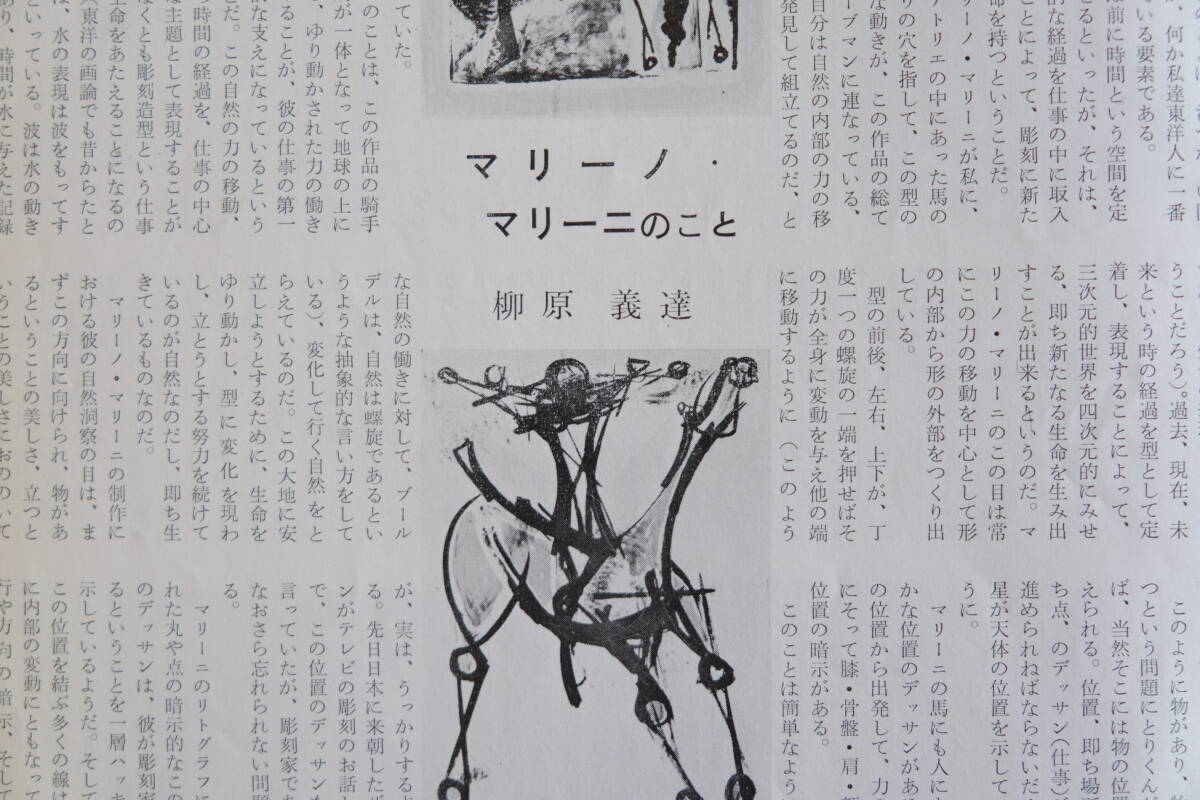 、何か私達東洋人に一番
いる要素である。
は前に時間という空間を定
るといったが、それは、
的な経過を仕事の中に取入
ことによって、彫刻に新た
命を持つということだ。
リーノ・マリーニが私に、
トリエの中にあった馬の
りの穴を指して、この型の
な動きが、この作品の総て
ーブマンに連なっている、
自分は自然の内部の力の移
発見して組立てるのだ、と
マリーノ・
マリーニのこと
柳原義達
ていた。
のことは、この作品の騎手
が一体となって地球の上に
、ゆり動かされた力の働き
ることが、彼の仕事の第一
的な支えになっているという
だ。この自然の力の移動、
ち時間の経過を、仕事の中心
な主題として表現することが
なくとも彫刻造型という仕事
生命をあたえることになるの
東洋の画論でも昔からたと
は、水の表現は波をもってす
といっている。波は水の動き
あり、時間が水に与えた記録
うことだろう）。過去、現在、未
来という時の経過を型として定
着し、表現することによって、
三次元的世界を四次元的にみせ
る、即ち新たなる生命を生み出
すことが出来るというのだ。マ
リーノ・マリーニのこの目は常
にこの力の移動を中心として形
の内部から形の外部をつくり出
している。
型の前後、左右、上下が、丁
度一つの螺旋の一端を押せばそ
の力が全身に変動を与え他の端
に移動するように（このよう
な自然の働きに対して、ブール
デルは、自然は螺旋であるとい
うような抽象的な言い方をして
いる）、変化して行く自然をと
らえているのだ。この大地に安
立しようとするために、生命を
ゆり動かし、型に変化を現わ
し、立とうとする努力を続けて
いるのが自然なのだし、即ち生
きているものなのだ。
マリーノ・マリーニの制作に
おける彼の自然洞察の目は、ま
ずこの方向に向けられ、物があ
るということの美しさ、立つと
いうことの美しさにおののいて
このように物があり、
つという問題にとりくん
ば、当然そこには物の位
えられる。位置、即ち場
ち点、のデッサン（仕事）
進められねばならないだ
星が天体の位置を示して
うに。
マリーニの馬にも人に
かな位置のデッサンがあ
の位置から出発して、力の
にそって膝・骨盤・肩・
位置の暗示がある。
このことは簡単なよう
が、実は、うっかりする
る。先日日本に来朝した
ンがテレビの彫刻のお話
で、この位置のデッサン
言っていたが、彫刻家で
なおさら忘れられない問
る。
マリーニのリトグラフに
れた丸や点の暗示的なこの
のデッサンは、彼が彫刻家
るということを一層ハッキ
示しているようだ。そして
この位置を結ぶ多くの線は
に内部の変動にともなって
行や方向の暗示、そして